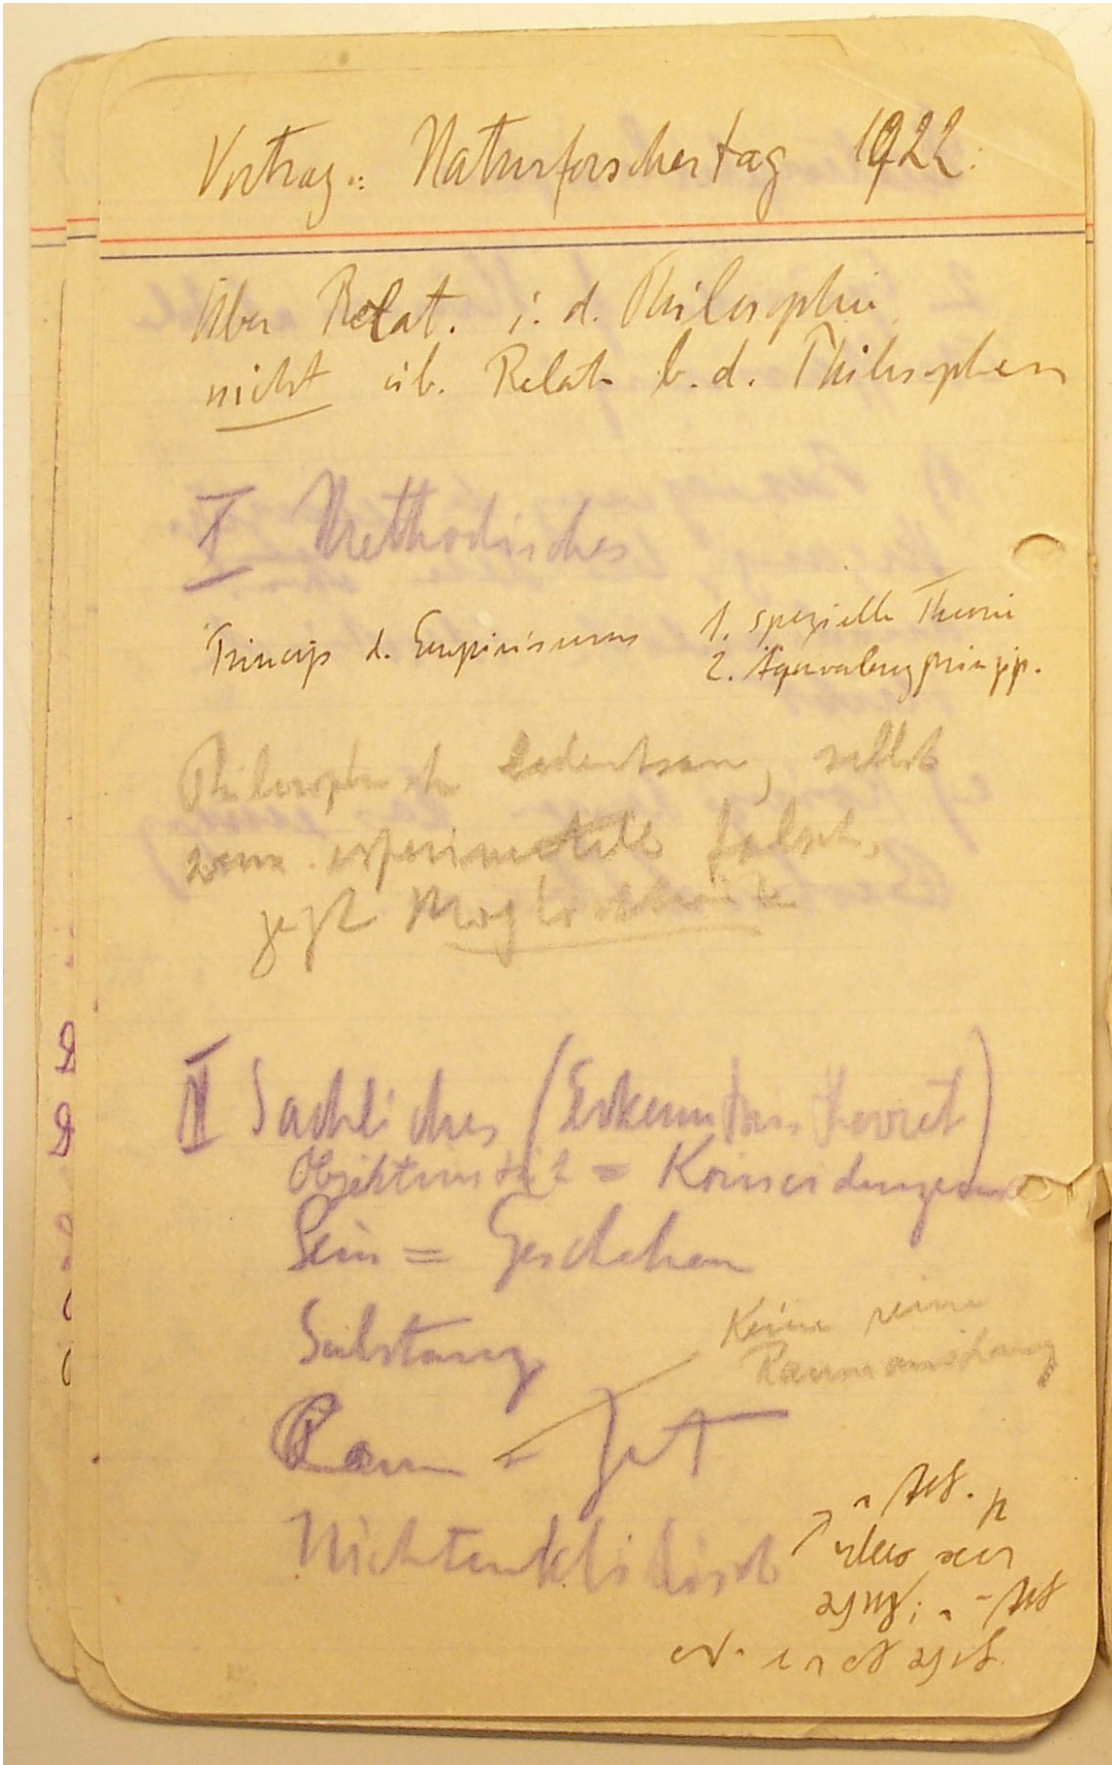 Vortrag: Naturforschertag 1922.
Über Relat. i. d. Philosophie,
nicht üb. Relat. b. d. Philosophen
I Methodisches
Princip d. Empirismus
1. spezielle Theorie
2. Äquivalenzprinzip.
Philosophisch bedeutsam, selbst
wenn experimentell falsch,
zeigt Möglichkeit
II Sachliches (Erkenntnistheoret)
Objektivität = Koinzidenzen
Sein = Geschehen
Substanz
Keine reine
Raumanschauung
Raum - Zeit
Nichteuklidisch